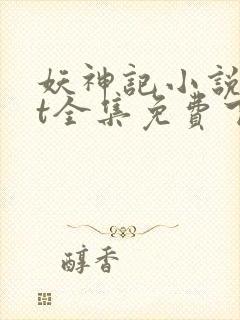 妖神記小說
t全集免費
醇香